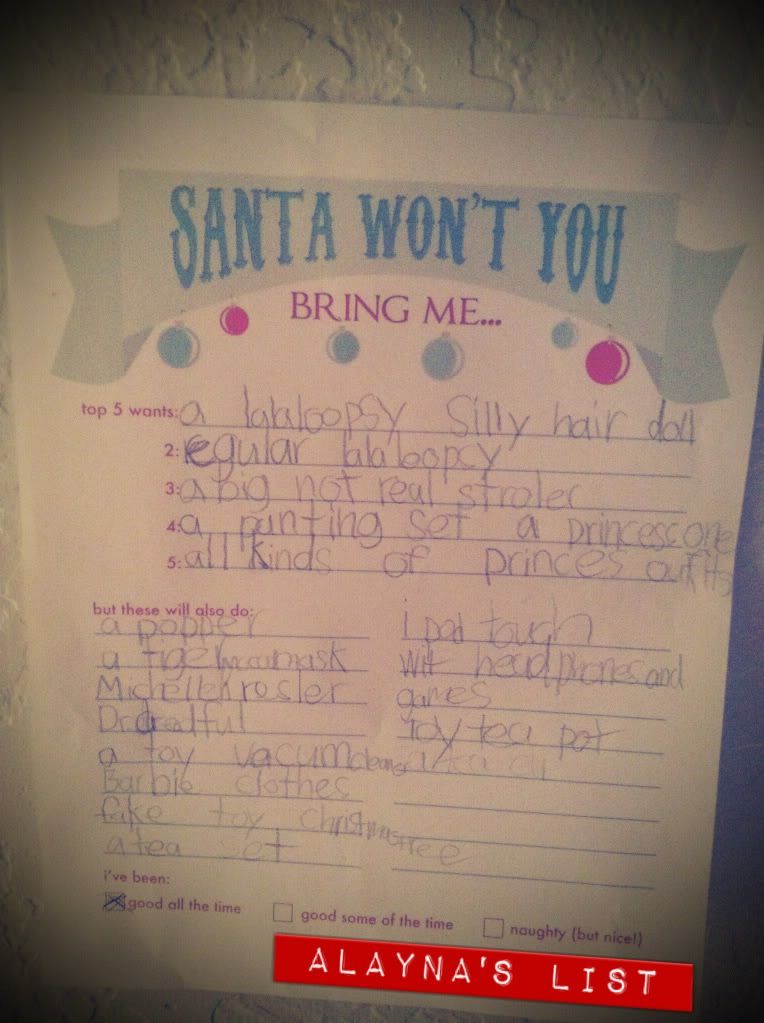 SANTA WON'T YOU
BRING ME...
top 5 wants: a lalaloopsy Silly hair doll
2: regular lalaloopcy
3: a big not real stroler
4: a punting set a princesc one
5: all kinds of princes outfits
but these will also do:
a popper
a tiger mask
Michelle
Dr dradful
a toy vacum cleaner
Barbie clothes
fake toy christmas tree
a tea set
i pod tough
wit head phones and
games
Toy tea pot
i've been:
good all the time
good some of the time
naughty (but nice!)
ALAYNA'S LIST